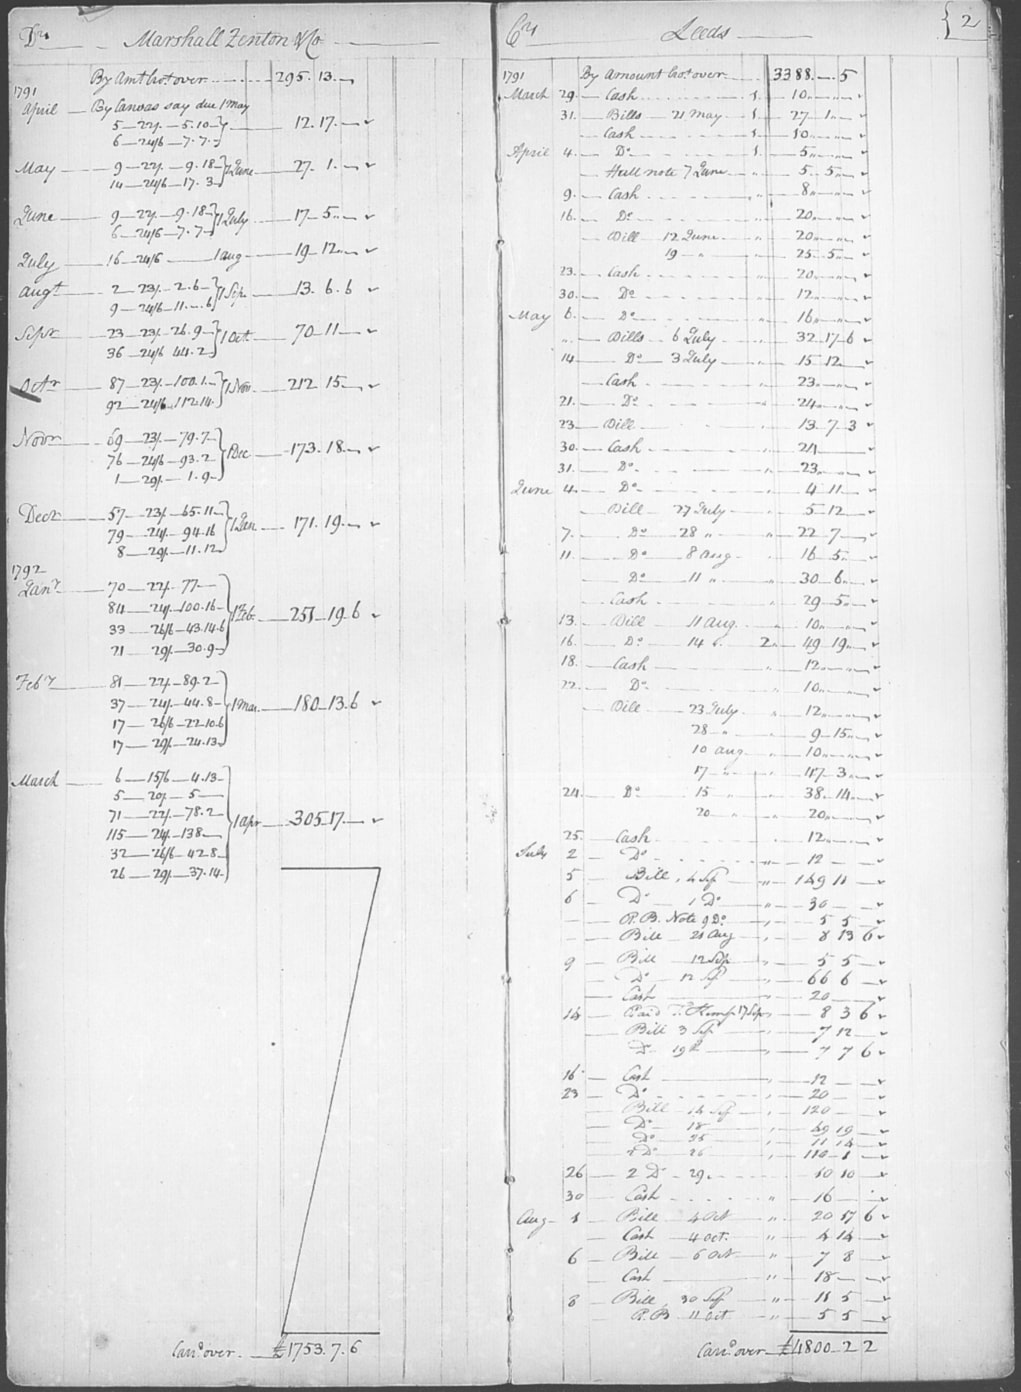 Dr Marshall Fenton & Co
By Amt brot over 295. 13. —
1791
April By Canvas say due 1 May
5 — 22/. — 5.10
6 — 24/6 — 7.7 12. 17. —
May 9 — 22/. — 9.18
14 — 24/6 — 17.3 1 June 27. 1. —
June 9 — 22/. — 9.18
6 — 24/6 — 7.7 1 July 17. 5. —
July 16 — 24/6 1 Aug 19. 12. —
Augt 2 — 23/. — 2.6
9 — 24/6 — 11..6 1 Sep. 13. 6. 6
Sepr 23 — 23/. — 26.9
36 — 24/6 — 44.2 1 Oct 70. 11 —
Octr 87 — 23/. — 100.1
92 — 24/6 — 112.14 1 Nov 212. 15 —
Novr 69 — 23/. — 79.7
76 — 24/6 — 93.2 1 Dec 173. 18 —
1 — 29/. — 1.9
Decr 57 — 23/. — 65.11
79 — 24/. — 94.16 1 Jan. 171. 19 —
8 — 29/. — 11.12
1792
Janr 70 — 22/. — 77 —
84 — 24/. — 100.16
33 — 26/6 — 43.14.6 1 Feb. 251. 19. 6
21 — 29/. — 30.9
Febr 81 — 22/. — 89.2
37 — 24/. — 44.8
17 — 26/6 — 22.10.6 1 Mar. 180. 13. 6
17 — 29/. — 24.13
March 6 — 15/6 — 4.13
5 — 20/. — 5
71 — 22/. — 78.2
115 — 24/. — 138 1 Apr 305. 17 —
32 — 26/6 — 42.8
26 — 29/. — 37.14
Carrd over £1753. 7. 6
Cr Leeds 2
1791 By Amount brot over 3388. — 5
March 29 Cash 10 " "
31 Bills 21 May 27 1 "
Cash 10 " "
April 4 Do 5 " "
Hull note 7 June 5 5 "
9 Cash 8 " "
16 Do 20 " "
Bill 12 June 20 " "
19 " 25 5 "
23 Cash 20 " "
30 Do 12 " "
May 6 Do 16 " "
" Bills 6 July 32 17 6
14 Do 3 July 15 12
Cash 23 " "
21 Do 24 " "
23 Bill 13 7 3
30 Cash 24
31 Do 23 " "
June 4 Do 4 11
Bill 27 July 5 12
7 Do 28 " 22 7
11 Do 8 Aug 16 5
Do 11 " 30 6
Cash 29 5
13 Bill 11 Aug 10 " "
16 Do 14 " 2 49 19
18 Cash 12 " "
22 Do 10 " "
Bill 23 July 12 " "
28 " 9 15
10 Aug 10 " "
17 " 47 3
24 Do 15 " 38 14
20 20 " "
25 Cash 12 " "
July 2 Do 12 —
5 Bill 4 Sep 149 11
6 Do 1 Do 30 —
P.B. Note 9 Do 5 5
Bill 21 Aug 8 13 6
9 Bill 12 Sep 5 5
Do 12 Sep 66 6
Cash 20
14 Paid 17 Sep 8 3 6
Bill 3 Sep 7 12
Do 19 7 7 6
16 Cash 12 —
23 Do 20 —
Bill 14 Sep 120 —
Do 18 49 19
Do 25 11 14
2 Do 26 110 1
26 2 Do 29 10 10
30 Cash 16 —
Aug 1 Bill 4 Oct 20 17 6
Cash 4 Oct. 4 14
6 Bill 6 Oct 7 8
Cash 18 —
8 Bill 30 Sep 11 5
P.B 11 Oct 5 5
Carrd over £4800 2 2